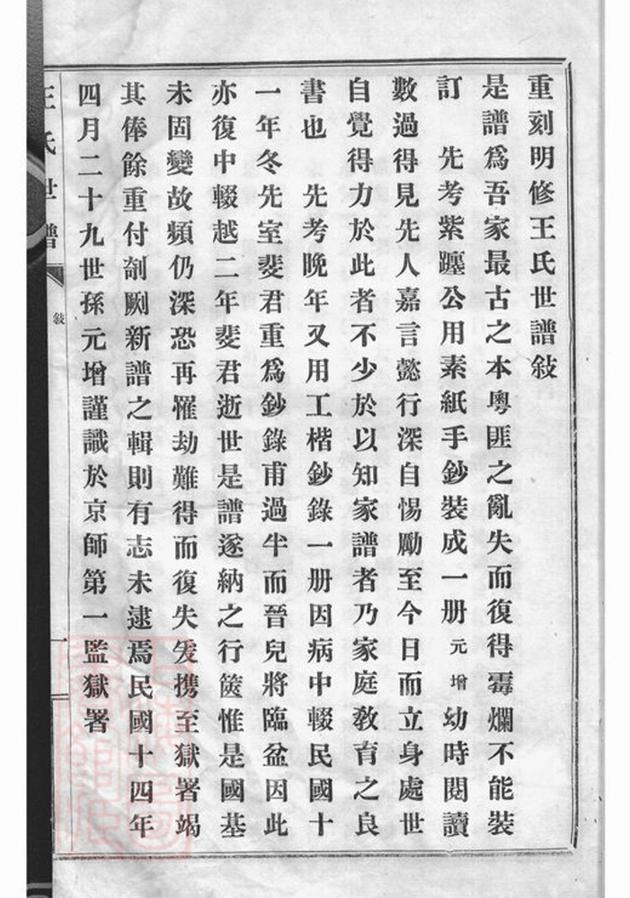 重刻明修王氏世譜敍
是譜爲吾家最古之本粵匪之亂失而復得霉爛不能裝
訂　先考紫躔公用素紙手鈔裝成一册元增幼時閱讀
數過得見先人嘉言懿行深自惕勵至今日而立身處世
自覺得力於此者不少於以知家譜者乃家庭敎育之良
書也　先考晚年又用工楷鈔錄一册因病中輟民國十
一年冬先室斐君重爲鈔錄甫過半而晉兒將臨盆因此
亦復中輟越二年斐君逝世是譜遂納之行篋惟是國基
未固變故頻仍深恐再罹劫難得而復失爰携至獄署竭
其俸餘重付剞劂新譜之輯則有志未逮焉民國十四年
四月二十九世孫元增謹識於京師第一監獄署
王氏世譜
敍
一